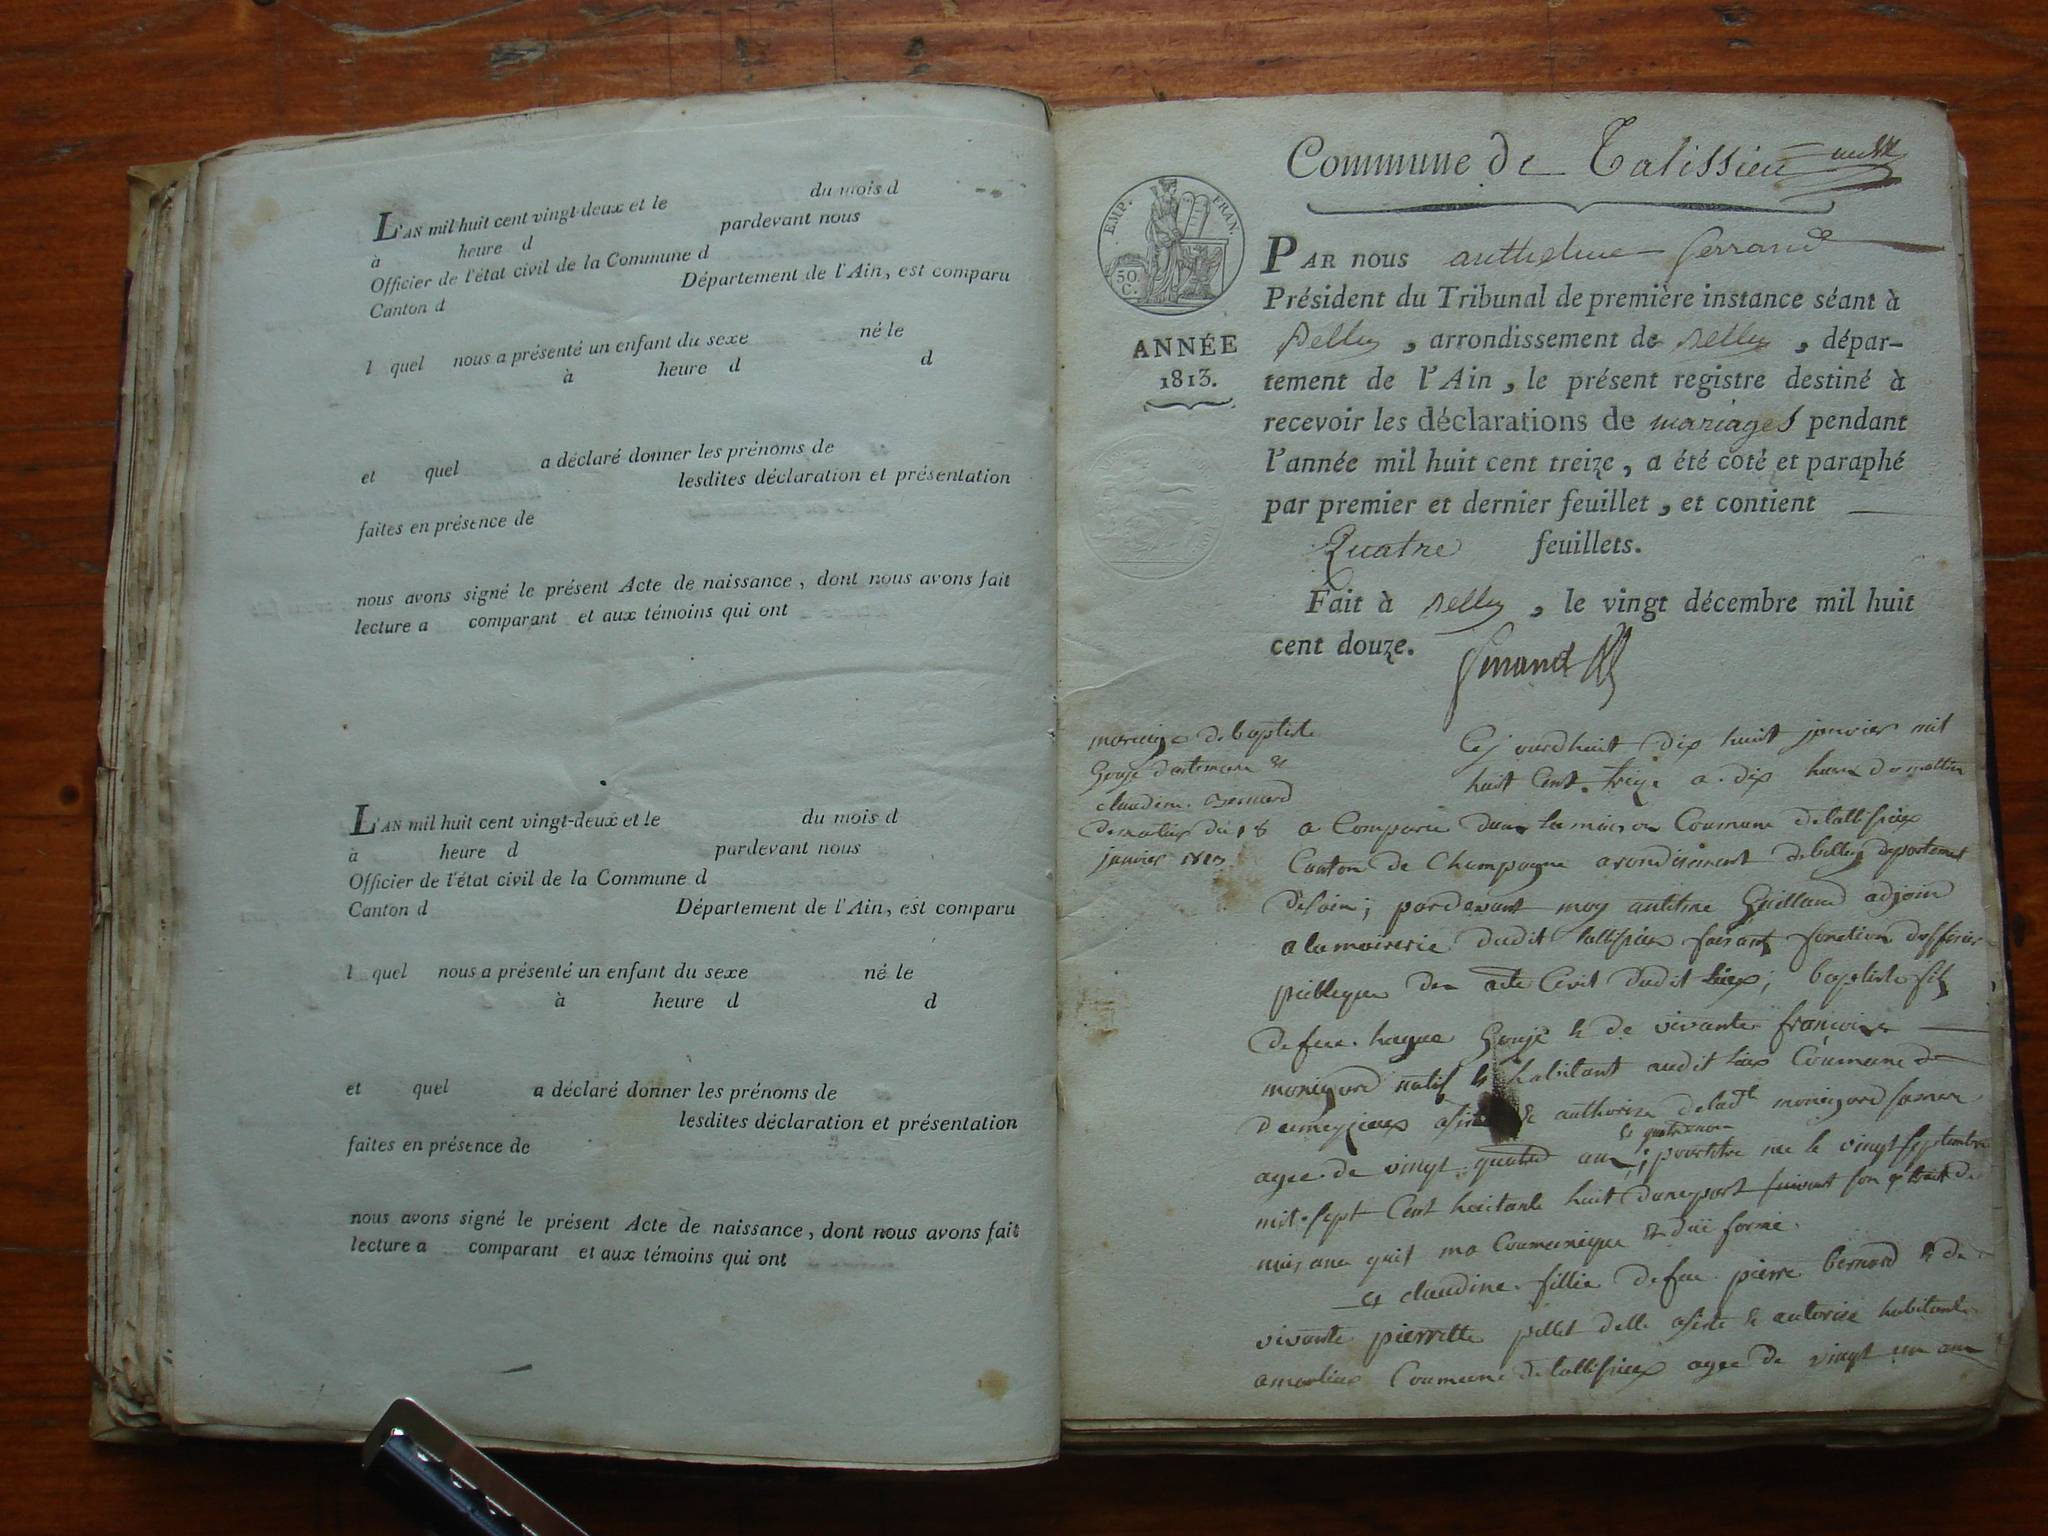 L'AN mil huit cent vingt-deux et le du mois d
à heure d pardevant nous
Officier de l'état civil de la Commune d
Canton d Département de l'Ain, est comparu
l quel nous a présenté un enfant du sexe né le
à heure d d
et quel a déclaré donner les prénoms de
lesdites déclaration et présentation
faites en présence de
nous avons signé le présent Acte de naissance, dont nous avons fait
lecture a comparant et aux témoins qui ont
L'AN mil huit cent vingt-deux et le du mois d
à heure d pardevant nous
Officier de l'état civil de la Commune d
Canton d Département de l'Ain, est comparu
l quel nous a présenté un enfant du sexe né le
à heure d d
et quel a déclaré donner les prénoms de
lesdites déclaration et présentation
faites en présence de
nous avons signé le présent Acte de naissance, dont nous avons fait
lecture a comparant et aux témoins qui ont
Commune de Talissieu
EMP. FRAN.
50.
C.
ANNÉE
1813.
PAR nous anthelme ferrand
Président du Tribunal de première instance séant à
Belley, arrondissement de Belley, dépar-
tement de l'Ain, le présent registre destiné à
recevoir les déclarations de mariages pendant
l'année mil huit cent treize, a été coté et paraphé
par premier et dernier feuillet, et contient
Quatre feuillets.
Fait à Belley, le vingt décembre mil huit
cent douze.
mariage de baptiste
Gouje &
claudine Bernard
du 18
janvier 1813
Cejourdhuit dix huit janvier mil
huit Cent treize a dix heure du mattin
a Comparu dans la maison Coumune de tallissieux
Canton de Champagne arondisement de belley departemet
delain; pardevant moy antelme Guilland adjoin
a la mairerie dudit tallissieux faisant fonction dofficier
publique des acte Civil dudit lieux; baptiste fils
de feu Gouje & de vivante francoise
monigard natif & habitant audit lieux Coumune de
& authorize de ladte monigard sa mere
agee de vingt quatre ans
& quatre mois
pour titre nee le vingt septembre
mil sept Cent huitante huit dunepart suivant son extrait de
naisance quil ma Coumunique & duë forme.
et claudine fillie de feu pierre bernard & de
vivante pierrette pellet delle asiste & autorise habitante
a marlieux Coumune de tallissieux agee de vingt un an